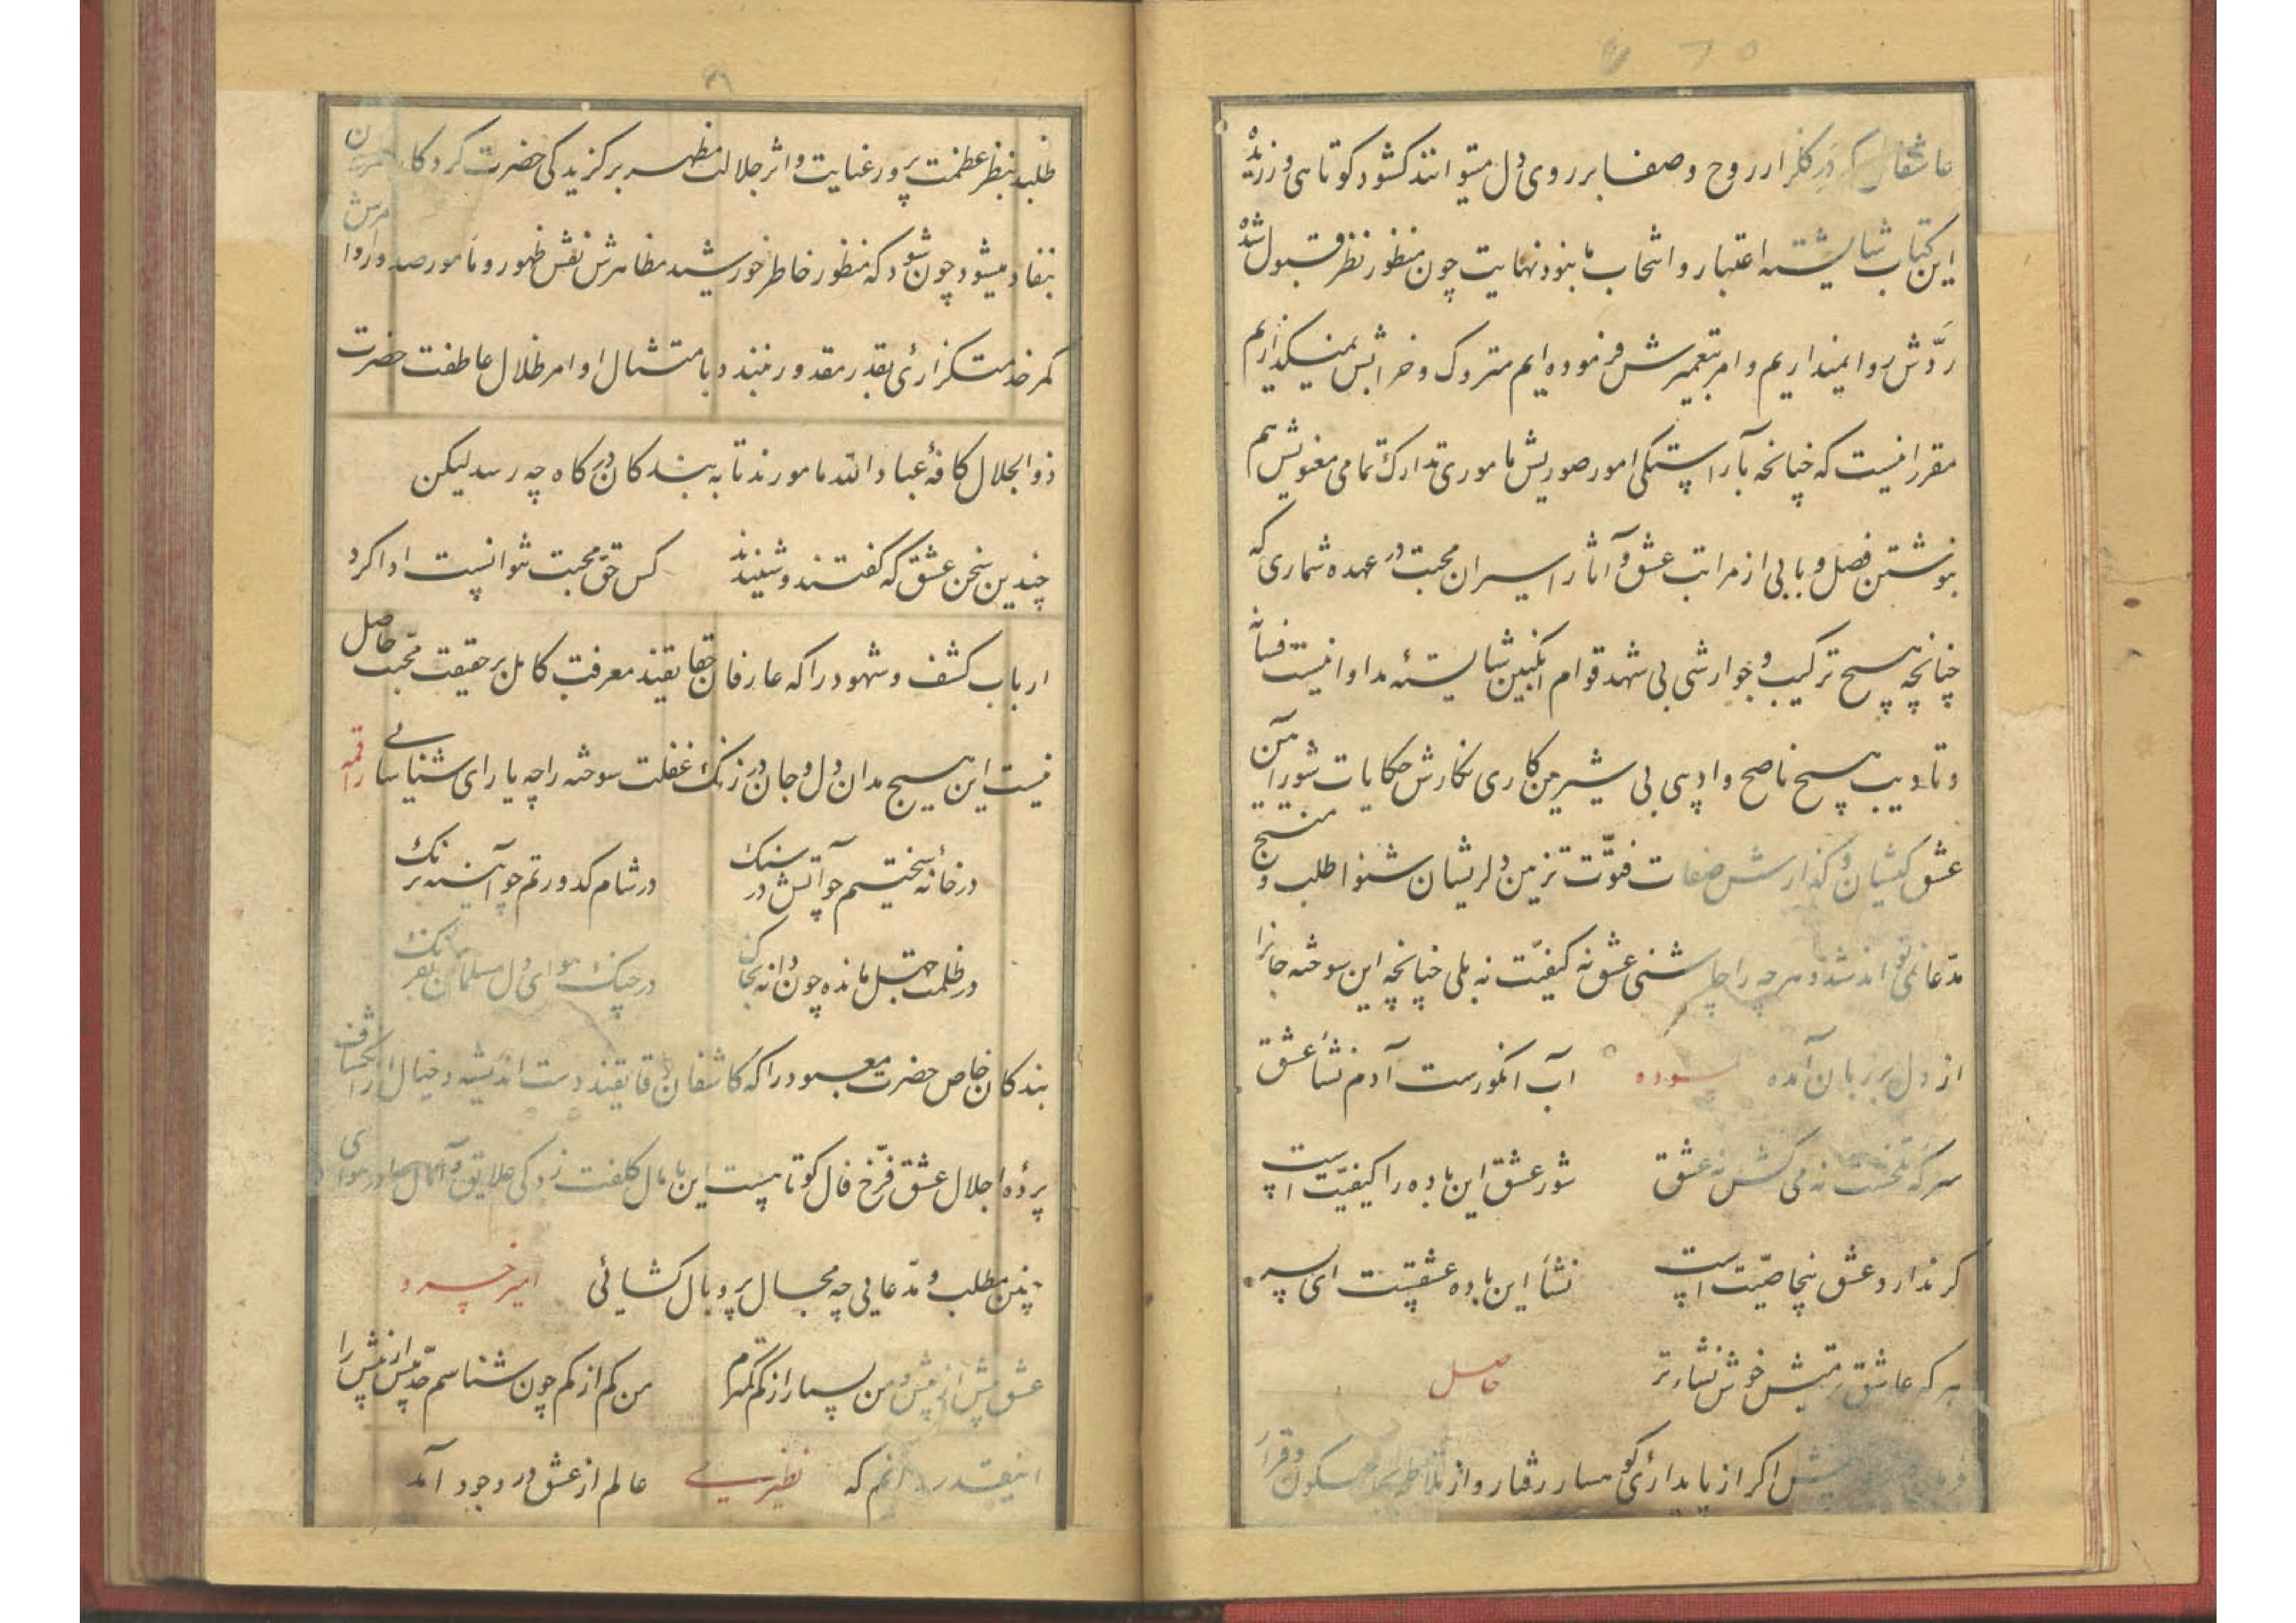 عاشقان که در گلزار روح و صفا بر روی دل میتوانند گشود کوتاهی ورزیده
این کتاب شایسته اعتبار و انتخاب ما نبود نهایت چون منظور نظر قبول شده
ردّش روا نمیداریم و امر بتعمیرش فرموده ایم متروک و خرابش نمیگذاریم
مقرر اینست که چنانچه بآراستگی امور صوریش ماموری تدارک تمامی معنویش هم
بنوشتن فصل و بابی از مراتب عشق و آثار اسیران محبت در عهده شماری که
چنانچه هیچ ترکیب و جوارشی بی شهد قوام انگبین شایستهٔ مداوا نیست فسانه
و تادیب هیچ ناصح و ادیبی بی شیرین کاری نگارش حکایات شورآمن
عشق کیشان و گذارش صفات فتوّت تزیین دلریشان شنوا طلب و منتج
مدّعا نمی تواند شد و هرچه را چاشنی عشق نه کیفیّت نه بلی چنانچه این سوخته جانرا
از دل بر زبان آمده   لمسوده   آب انگورست آدم نشأ عشق
سرکه تلخست نه می گش نه عشق   شور عشق این باده را کیفیّت است
گر ندارد عشق بیخاصیّت است   نشأ این باده عشقست ای پسر
هر که عاشق بیش خوش نشاء تر   حاصل
اگر از پایداری کوهسار رفتار و از تلاطم سکون و قرار
طلبد بنظر عظمت پرور عنایت و اثر جلالت مظهر برگزیدگی حضرت کردگار
بنفاد میشود چون شود که منظور خاطر خورشید مظاهرش نقش ظهور و مامور صدور اوامرش
کمر خدمتگزاریٔ بقدر مقدور نبندد بامتثال اوامر ظلال عاطفت حضرت
ذوالجلال کافهٔ عباد الله مامورند تا به بندگان درگاه چه رسد لیکن
چندین سخن عشق که گفتند و شنیدند   کس حق محبت نتوانست ادا کرد
ارباب کشف و شهود را که عارفان حقایقند معرفت کامل بر حقیقت محبت حاصل
نیست این هیچ مدان دل و جان در زنگ غفلت سوخته را چه یارای شناسایی   راقمه
در خانه سختیم چو آتش در سنگ   در شام کدورتم چو آینه بزنگ
در ظلمت جهل مانده چون دانه بخاک   در چنگ هوای دل مسلمان بفرنگ
بندگان خاص حضرت معبود را که کاشفان دقایقند دست اندیشه و خیال از انکشاف
پردهٔ اجلال عشق فرّخ فال کوتاهست این پامال کلفت زدگی علایق و آمال را در هوای
چنین مطلب و مدّعایی چه مجال پر و بال گشائی   امیر خسرو
عشق بیش از بیش و من بسیار از کم کمترم   من کم از کم چون شناسم حدّ بیش از بیش را
اینقدر دانم که   نظیری   عالم از عشق در وجود آمد